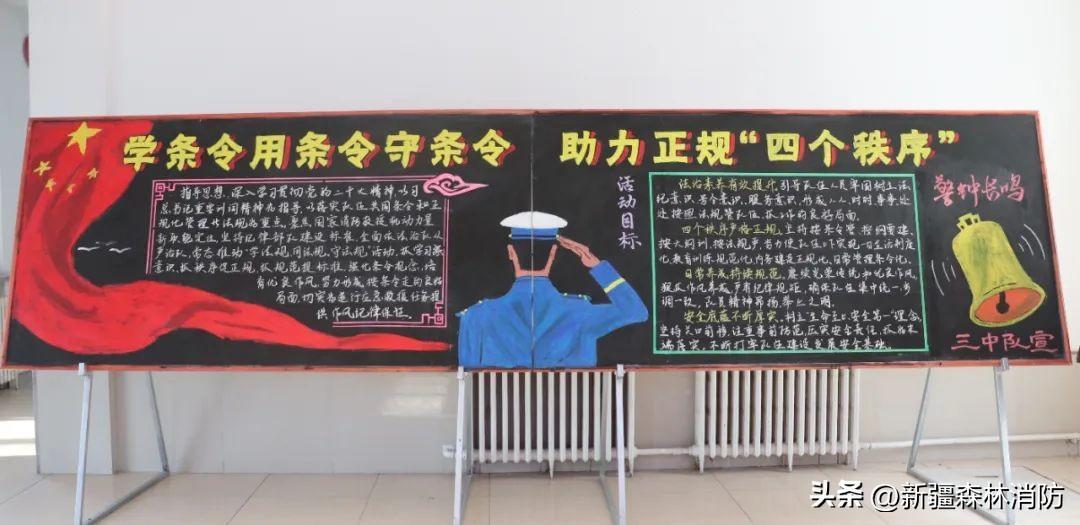 学条令用条令守条令
助力正规“四个秩序”
指导思想：深入学习贯彻党的二十大精神，以习
总书记重要训词精神为指导，以落实队伍共同条令和正
规化管理些法规为重点，聚焦国家消防救援机动力量
新职能定位，坚持纪律部队建设标准，全面依法治队从
严治队，常态推动“学法规、用法规、守法规”活动，从学习强
意识，抓秩序促正规，从规范提标准，强化条令观念，培
育优良作风，努力形成按条令走的良好
局面，切实为遂行应急救援任务提
供作风纪律保证。
活动目标
法治素养有效提升，引导队伍人员牢固树立法
纪意识、条令意识、服务意识，形成人人、时时、事事处
处按照法规管队伍、抓工作的良好局面。
四个秩序严格正规，坚持按条令管、按纲要建、
按大纲训、按法规严，着力使队伍工作实现一日生活制度
化、教育训练规范化、内务建设正规化、日常管理条令化。
日常养成持续规范，继续光荣传统和优良作风，
狠抓作风养成，严肃纪律规矩，确保队伍集中统一，步
调一致，队员精神昂扬，举止文明。
安全底蕴不断厚实，树立“生命至上、安全第一”理念，
坚持关口前移，注重事前防范，压实安全责任，抓好末
端落实，不断打牢队伍建设发展安全基础。
警钟长鸣
三中队宣
头条@新疆森林消防